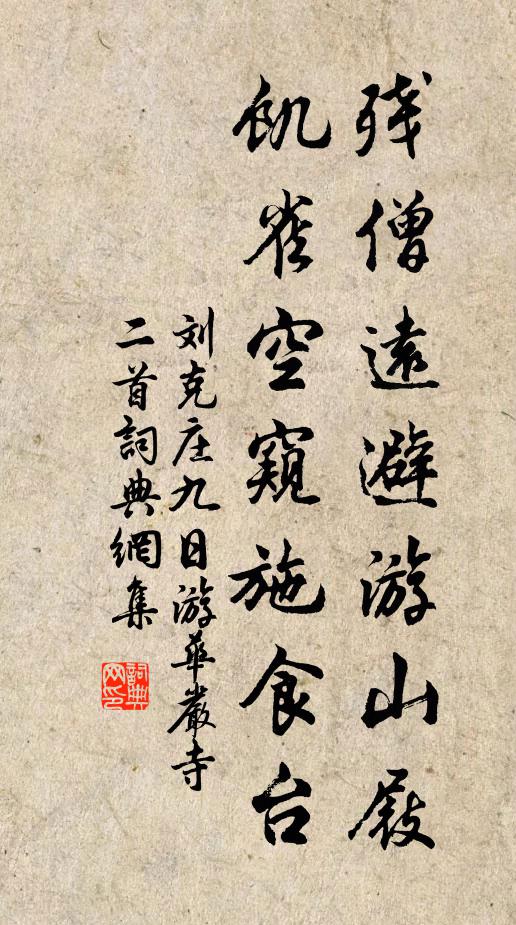 残僧遠避游山屐
飢雀空窺施食台
刘克庄九日游華巖寺
二首詞典網集
詞典网印